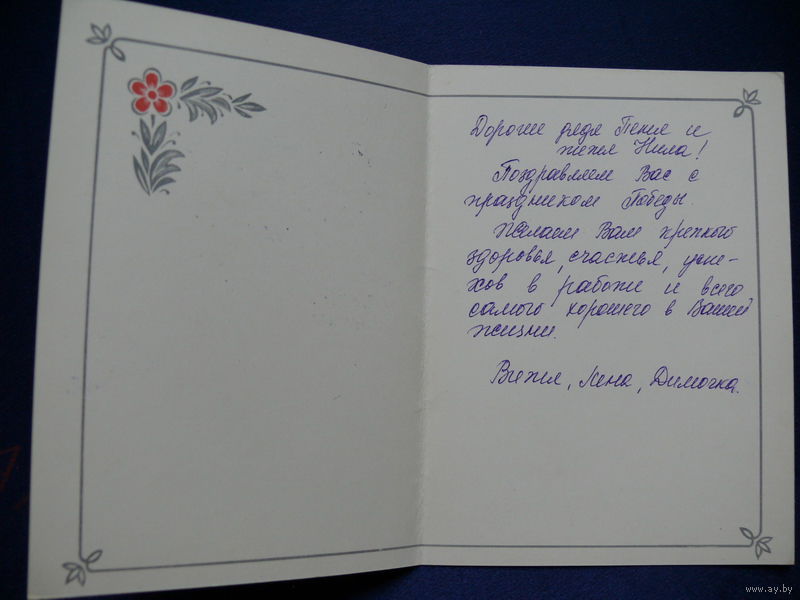 Дорогие дядя Пеня и
тётя Нила!
Поздравляем Вас с
праздником Победы.
Желаем Вам крепкого
здоровья, счастья, успе-
хов в работе и всего
самого хорошего в Вашей
жизни.
Витя, Лена, Димочка.
www.ay.by